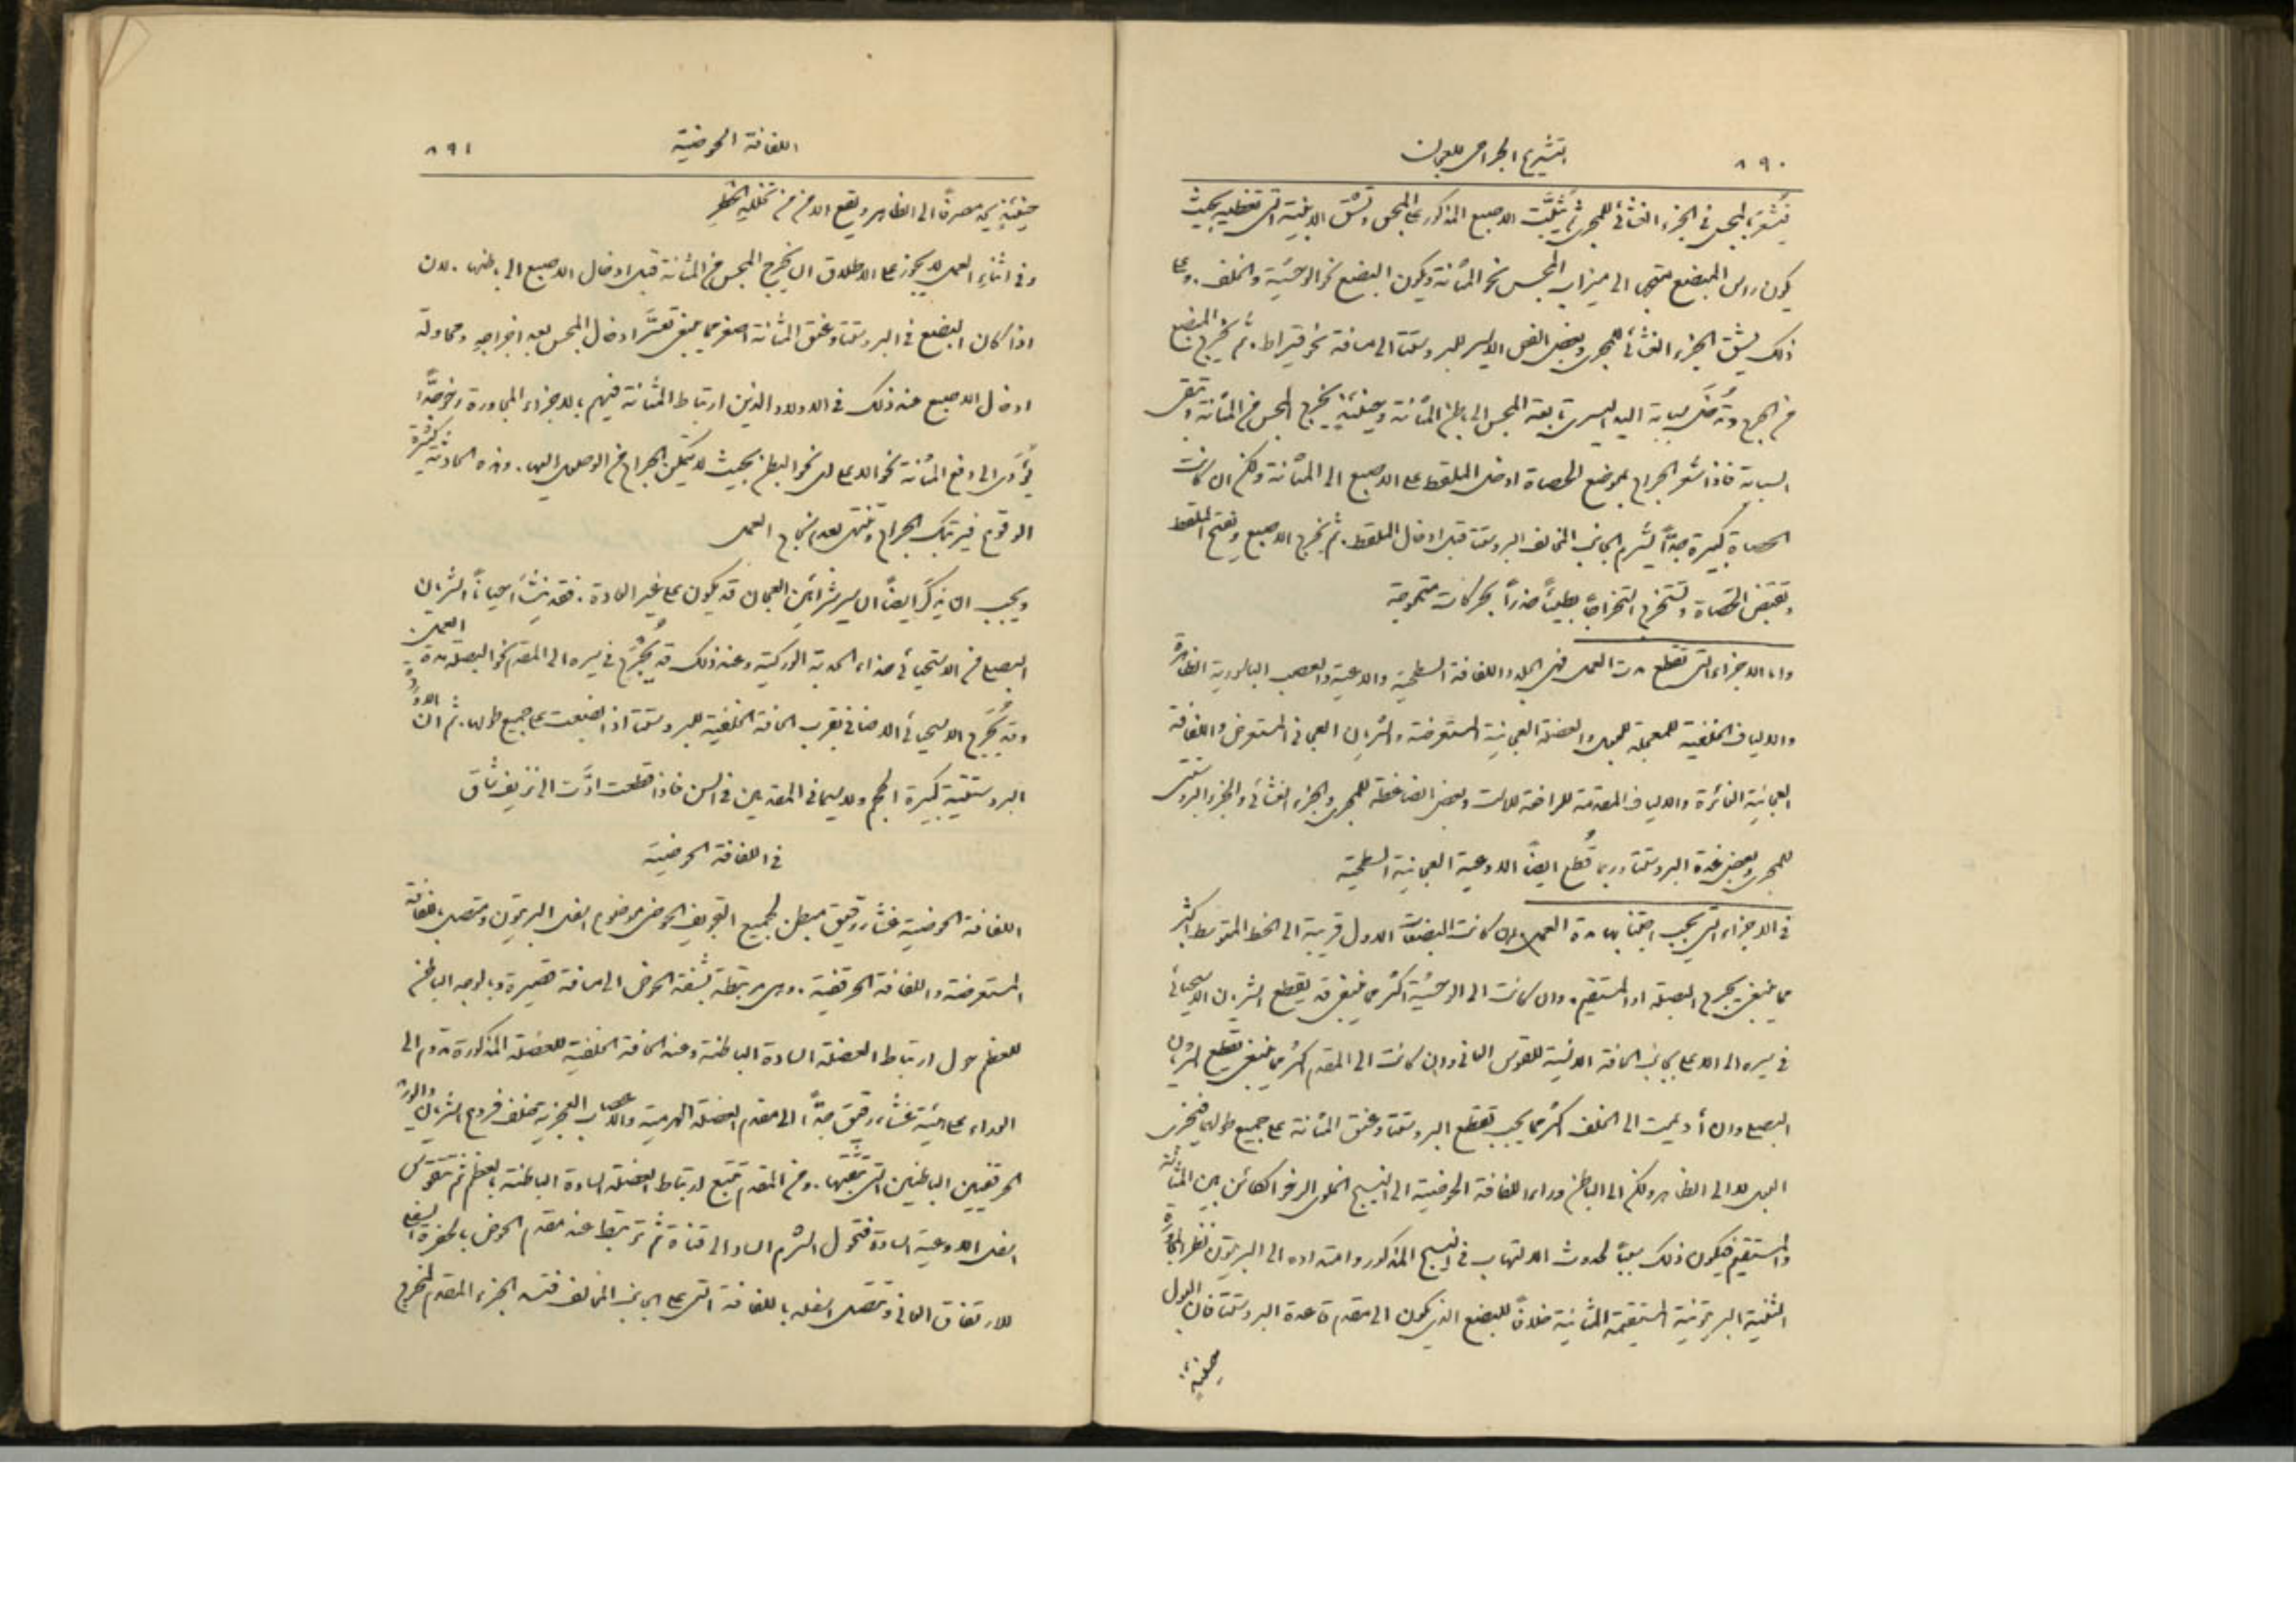 ٨٩٠
التشريح الجراحي للعجان
فيشعر بالمجس في الجزء الغشائي للمجرى ثم يثبَّت الاصبع المذكور على المجس وتشق الابنية التي تغطيه بحيث
يكون راس المبضع متجها الى ميزاب المجس نحو المثانة ويكون البضع نحو الوحشية والخلف. وعلى
ذلك يشق الجزء الغشائي للمجرى وبعض الفص الايسر للبروستتا الى مسافة نحو قيراط. ثم يُخرج المبضع
من الجرح وتُدخل سبابة اليد اليسرى تابعة المجس الى باطن المثانة وحينئذٍ يخرج المجس من المثانة وتبقى
السبابة فاذا شعر الجراح بموضع الحصاة ادخل الملقط على الاصبع الى المثانة ولكن ان كانت
الحصاة كبيرة جدًّا يُشرم الجانب المخالف للبروستتا قبل ادخال الملقط. ثم يخرج الاصبع ويفتح الملقط
وتقبض الحصاة وتستخرج استخراجًا بطيئًا حذرًا بحركات متموجة
واما الاجزاء التي تقطع مدة العمل فهي الجلد واللفافة السطحية والاوعية والعصب الباسورية الظاهرة
والالياف الخلفية للمعجلة للبول والعضلة العجانية المستعرضة والشريان العجاني المستعرض واللفافة
العجانية الغائرة والالياف المقدمة للرافعة للاست وبعض الضاغطة للمجرى والجزء الغشائي والجزء البروستتي
للمجرى وبعض غدة البروستتا وربما قُطع ايضًا الاوعية العجانية السطحية
في الاجزاء التي يجب اجتنابها مدة العمل. ان كانت البضعات الاول قريبة الى الخط المتوسط اكثر
مما ينبغي يجرح البصلة او المستقيم. وان كانت الى الوحشية اكثر مما ينبغي قد يقطع الشريان الاستحيائي
في سيره الى الاعلى بجانب الحافة الانسية للقوس العاني وان كانت الى المقدم اكثر مما ينبغي تقطع شريان
البصلي وان أُديمت الى الخلف اكثر مما يجب تقطع البروستتا وعنق المثانة على جميع طولهما فيجري
البول لا الى الظاهر ولكن الى الباطن وراء اللفافة الحوضية الى النسيج الخلوي الرخو الكائن بين المثانة
والمستقيم فيكون ذلك سببًا لحدوث الالتهاب في النسيج المذكور وامتداده الى البريتون نظرًا لمجاورة
الثنية البريتونية المستقيمة المثانية خلافًا للبضع الذي يكون الى مقدم قاعدة البروستتا فان البول
حينئذٍ
اللفافة الحوضية
٨٩١
حينئذٍ يجد مصرفًا الى الظاهر ويقع الامن من تخلله الخطر
وفي اثناء العمل لا يجوز على الاطلاق ان يخرج المجس من المثانة قبل ادخال الاصبع الى باطنها. لان
اذا كان البضع في البروستتا وعنق المثانة اصغر مما ينبغي تعسَّر ادخال المجس بعد اخراجهِ ومحاولة
ادخال الاصبع عند ذلك في الاولاد الذين ارتباط المثانة فيهم بالاجزاء المجاورة رخو جدًّا
يؤدّي الى دفع المثانة نحو الاعلى اي نحو البطن بحيث لا يتمكن الجراح من الوصول اليها. وهذه الحادثة كثيرة
الوقوع فيرتبك الجراح وتنتهي بعدم نجاح العمل
ويجب ان يذكر ايضًا ان سير شرائين العجان قد يكون على غير العادة. فقد ينشأ احيانًا الشريان
البصلي من الاستحيائي حذاء الحدبة الوركية وعند ذلك قد يُجرَح في سيره الى المقدم نحو البصلة مدة العمل.
وقد يُجرَح الاستحيائي الاضافي بقرب الحافة الخلفية للبروستتا اذا بضعت على جميع طولها. ثم ان الاوردة
البروستتية كبيرة الحجم ولاسيما في المتقدمين في السن فاذا قطعت ادَّت الى نزيف شاق
في اللفافة الحوضية
اللفافة الحوضية غشاء رقيق مبطن لجميع التجويف الحوضي موضوع اسفل البريتون ومتصل باللفافة
المستعرضة واللفافة الحرقفية. وهي مرتبطة بشفة الحوض الى مسافة قصيرة وبالوجه الباطن
للعظم حول ارتباط العضلة السادة الباطنة وعند الحافة الخلفية للعضلة المذكورة تدوم الى
الوراء على هيئة غشاء رقيق جدًّا الى مقدم العضلة الهرمية والاعصاب العجزية خلف فروع الشريان والوريد
الحرقفيين الباطنين التي تثقبها. ومن المقدم تتبع ارتباط العضلة السادة الباطنة بالعظم ثم تتقوس
اسفل الاوعية السادة فتحول الشرم الساد الى قناة ثم ترتبط عند مقدم الحوض بالحفرة السفلى
للارتفاق العاني وتتصل اسفله باللفافة التي على الجانب المخالف فتسد الجزء المقدم لمخرج